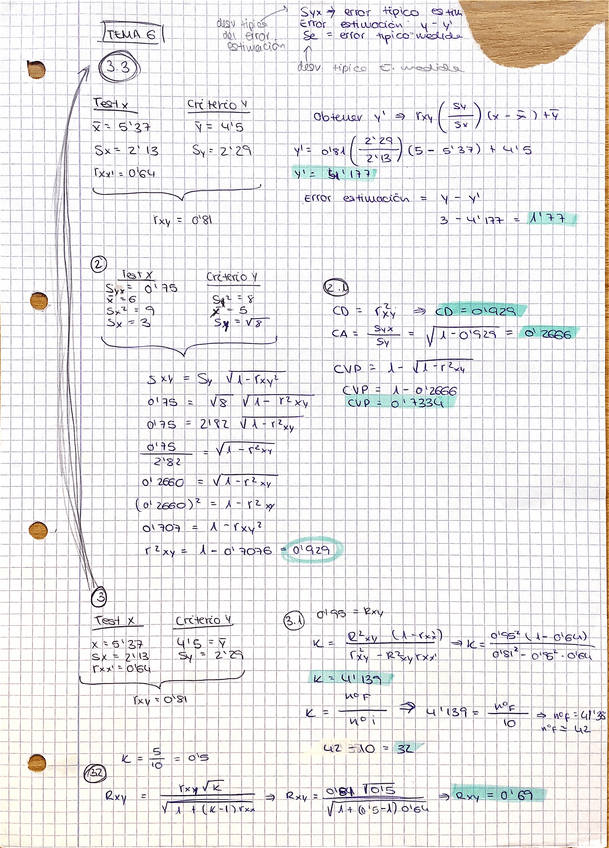 Syx ⇒ error típico estim
Error estimación: y - y'
Se = error típico medida
desv típica
del error
estimación
desv típica E. medida
TEMA 6
3.3
Test x
x̄ = 5'37
Sx = 2'13
rxx' = 0'64
Criterio Y
ȳ = 4'5
Sy = 2'29
rxy = 0'81
Obtener y' ⇒ rxy (Sy/Sx) (x - x̄) + ȳ
y' = 0'81 (2'29/2'13) (5 - 5'37) + 4'5
y' = 4'177
Error estimación = y - y'
3 - 4'177 = 1'77
2
Test x
Syx = 0'75
x = 6
Sx² = 9
Sx = 3
Criterio Y
Sy² = 8
x̄ = 5
Sy = √8
Sxy = Sy √1 - rxy²
0'75 = √8 √1 - r²xy
0'75 = 2'82 √1 - r²xy
0'75/2'82 = √1 - r²xy
0'2660 = √1 - r²xy
(0'2660)² = 1 - r²xy
0'707 = 1 - rxy²
r²xy = 1 - 0'7076 = 0'929
2.1
CD = r²xy ⇒ CD = 0'929
CA = Syx/Sy = √1 - 0'929 = 0'2666
CVP = 1 - √1 - r²xy
CVP = 1 - 0'2666
CVP = 0'7334
3
Test X
x = 5'37
Sx = 2'13
rxx' = 0'64
Criterio Y
4'5 = ȳ
Sy = 2'29
rxy = 0'81
3.1
0'95 = Rxy
K = R²xy (1 - rxx') / r²xy - R²xy rxx' ⇒ K = 0'95² (1 - 0'64) / 0'81² - 0'95² · 0'64
K = 4'139
K = nºF / nº i ⇒ 4'139 = nºF / 10 ⇒ nºF = 41'38
nºF ≃ 42
42 - 10 = 32
K = 5/10 = 0'5
Rxy = rxy √K / √1 + (K - 1) rxx ⇒ Rxy = 0'81 √0'5 / √1 + (0'5 - 1) 0'64 ⇒ Rxy = 0'69